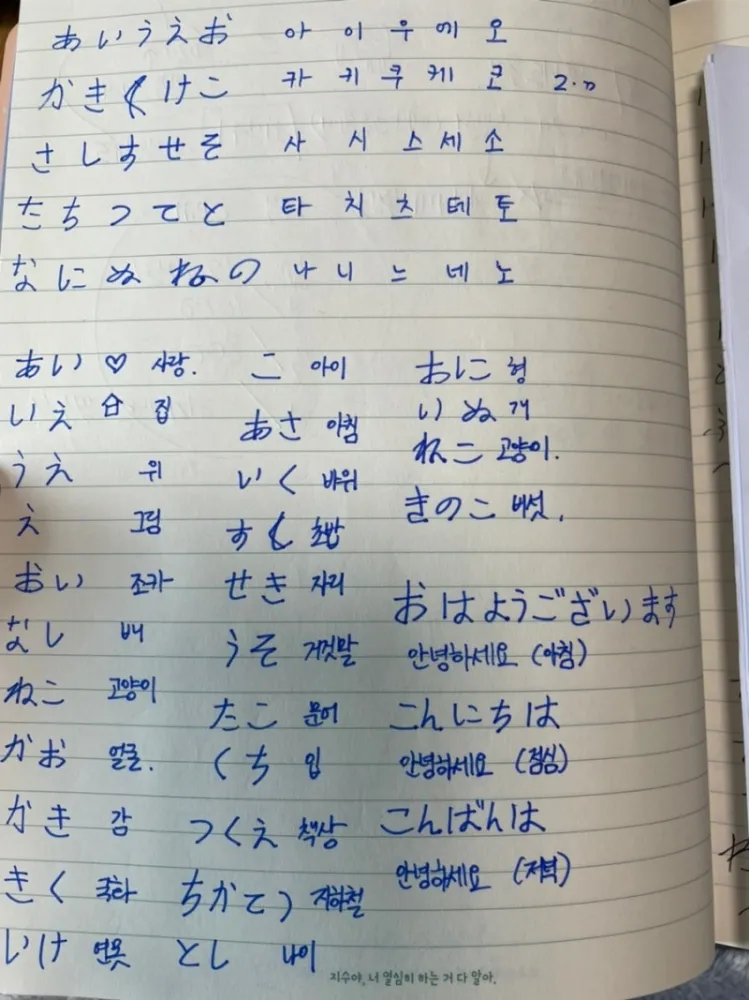 あいうえお 아 이 우 에 오
かきくけこ 카 키 쿠 케 코 2.n
さしすせそ 사 시 스 세 소
たちつてと 타 치 츠 테 토
なにぬねの 나 니 느 네 노
あい ♡ 사랑.
いえ 집
うえ 위
え 그림
おい 조카
なし 배
ねこ 고양이
かお 얼굴.
かき 감
きく 국화
いけ 연못
こ 아이
あさ 아침
いく 바위
すし 초밥
せき 자리
うそ 거짓말
たこ 문어
くち 입
つくえ 책상
ちかてつ 지하철
とし 나이
おに 형
いぬ 개
ねこ 고양이.
きのこ 버섯.
おはようございます
안녕하세요 (아침)
こんにちは
안녕하세요 (점심)
こんばんは
안녕하세요 (저녁)
지수야, 너 열심히 하는 거 다 알아.